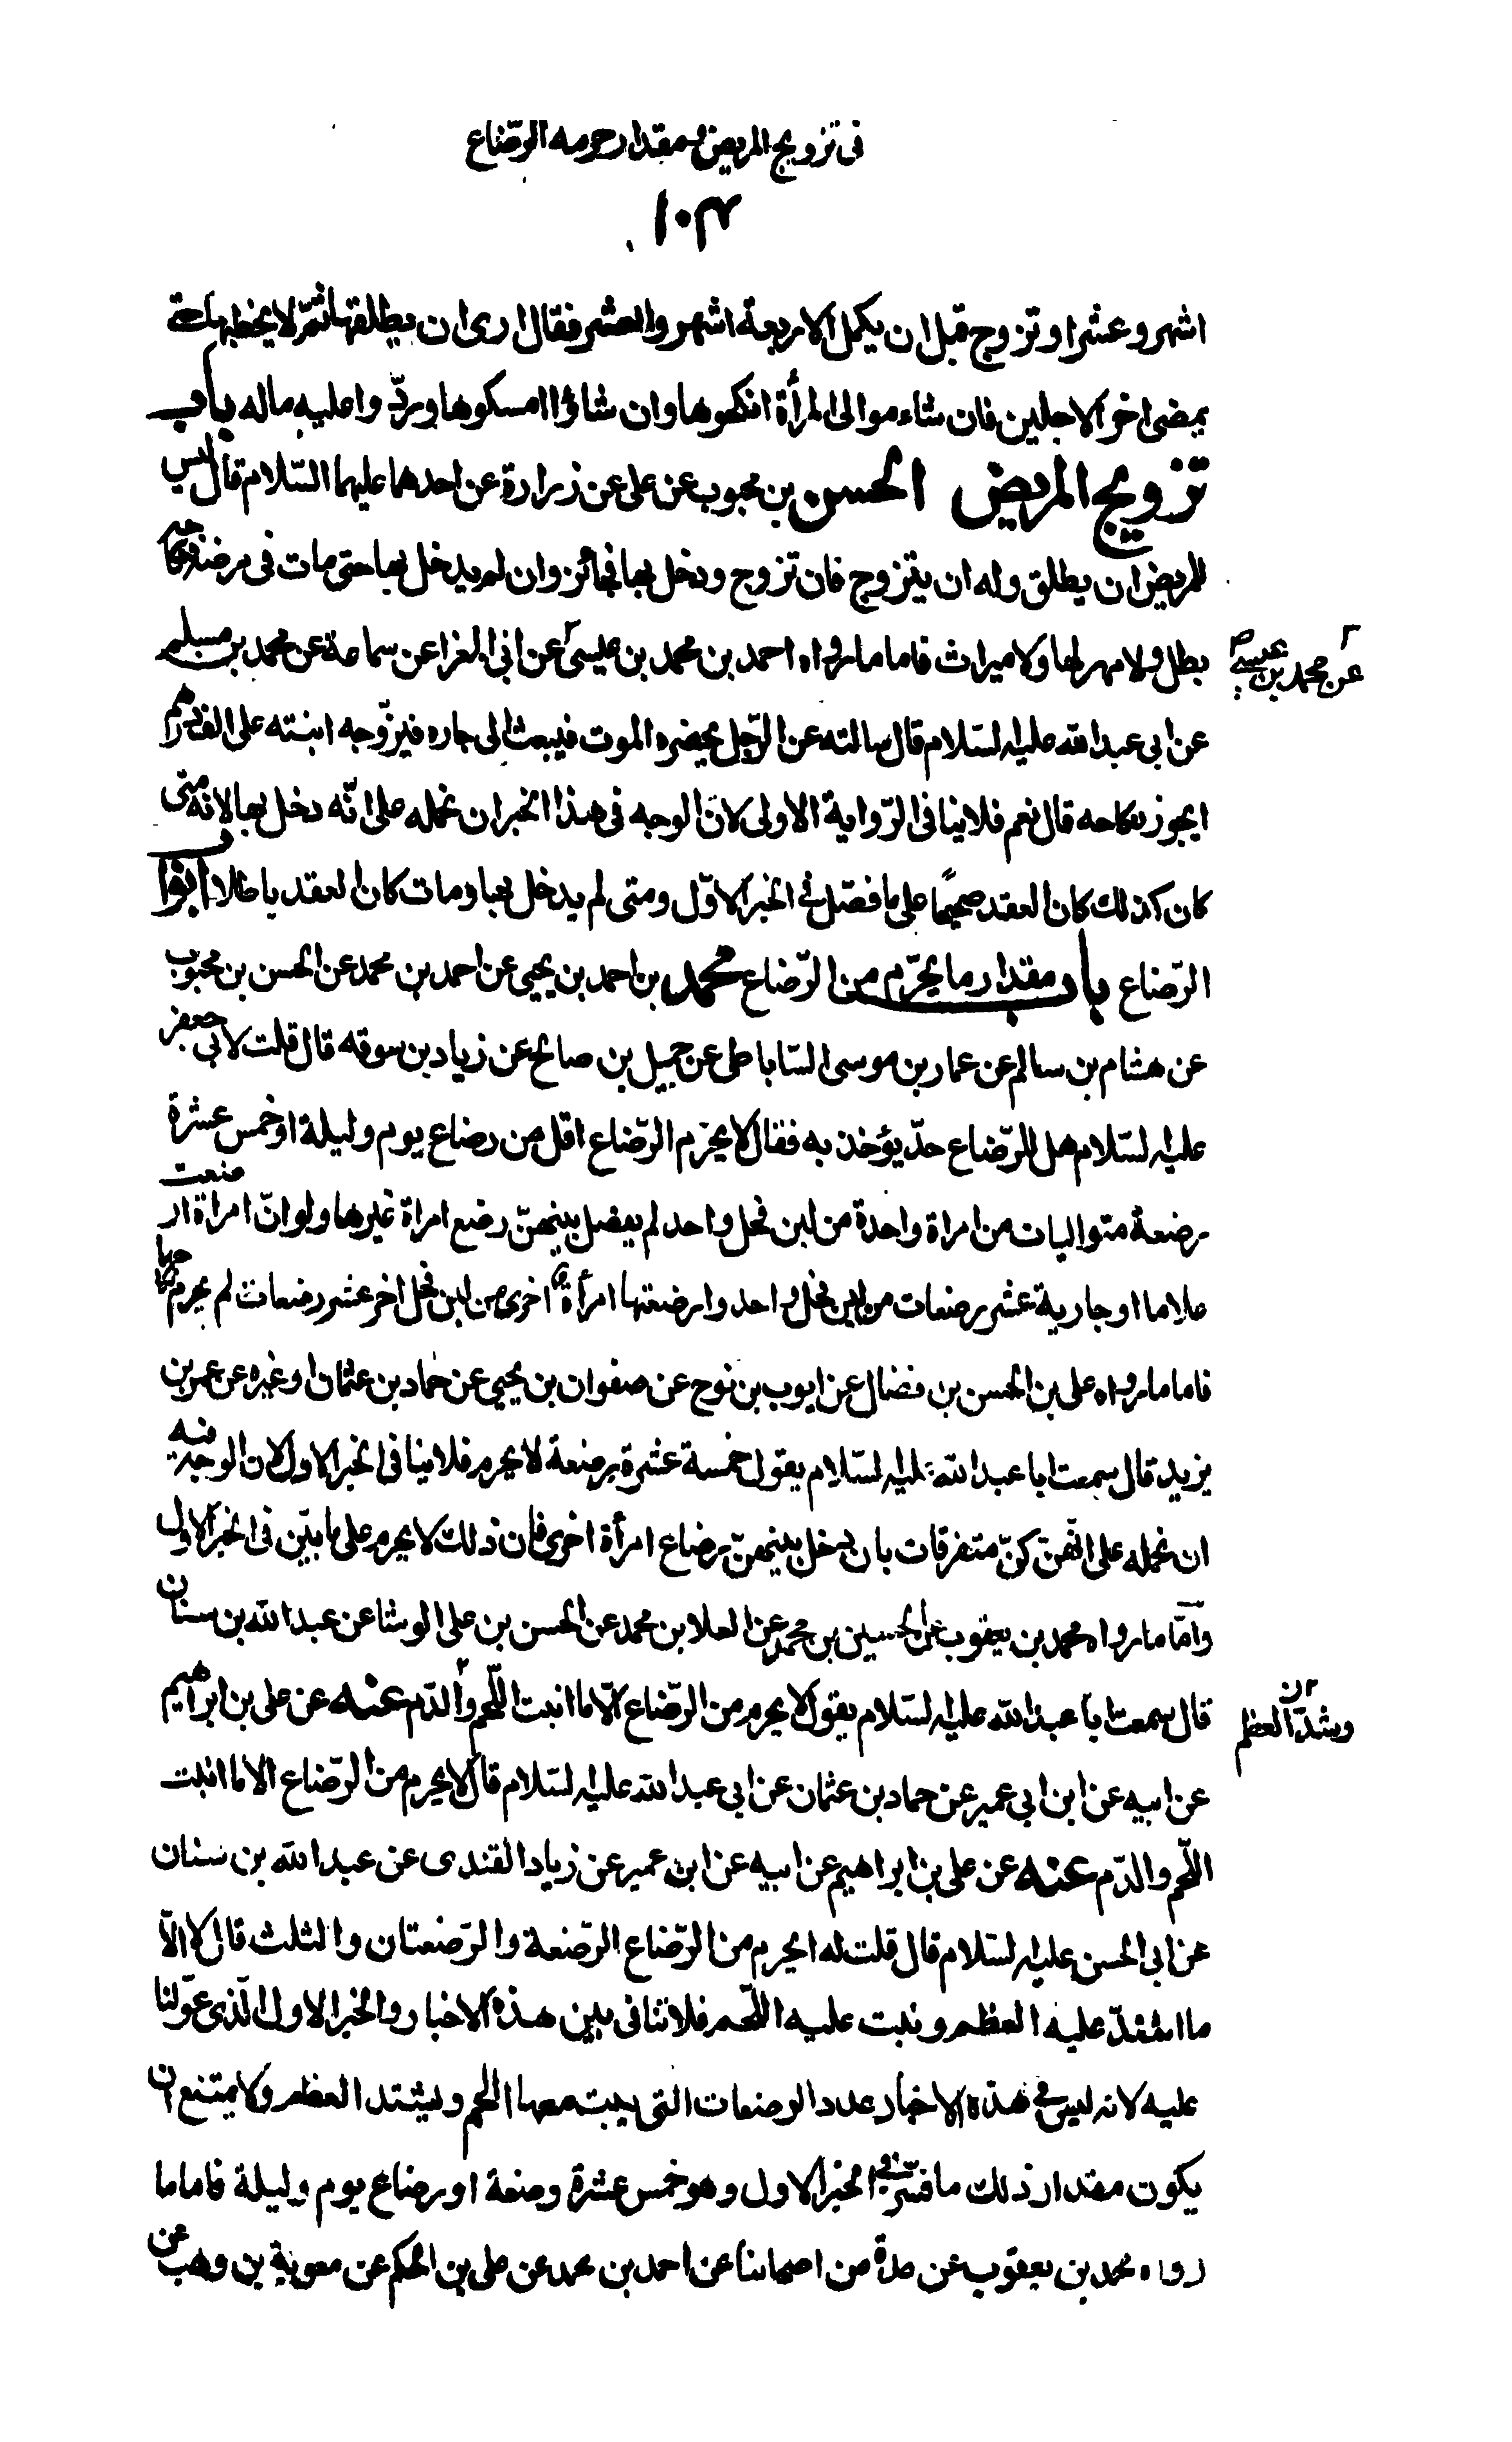 فى تزويج المريض ومقدار حرمه الرّضاع
١٠٣
اشهر وعشرا وتزوج قبل ان يكمل الاربعة اشهر والعشر فقال ارى ان يطلقها ثمّ لا يخطبها حتى
يمضى اخر الاجلين فان شاء موالى المرأة انكحوها وان شاؤا امسكوها وردّوا عليه ماله باب
تزويج المريض الحسن بن محبوب عن على عن زرارة عن احدهما عليهما السّلام قال ليس
للمريض ان يطلق وله ان يتزوج فان تزوج ودخل بها فجائز وان لم يدخل بها حتى مات فى مرضه فنكاحه
بطل ولا مهر لها ولا ميراث فاما ما رواه احمد بن محمد بن عيسى عن ابى المغرا عن سماعة عن محمد بن مسلم
عن محمد بن عيسى صح
عن ابى عبد الله عليه السّلام قال سالته عن الرّجل يحضره الموت فيبعث الى جاره فيزوّجه ابنته على الف درهم
ايجوز نكاحه قال نعم فلا ينافى الرّواية الاولى لانّ الوجه فى هذا الخبر ان نحمله على انّه دخل بها لانه متى
كان كذلك كان العقد صحيحًا على ما فصّل فى الخبر الاوّل ومتى لم يدخل بها ومات كان العقد باطلا ابواب
الرّضاع باب مقدار ما يحرّم من الرّضاع محمد بن احمد بن يحيى عن احمد بن محمد عن الحسن بن محبوب
عن هشام بن سالم عن عمار بن موسى السّاباطى عن جميل بن صالح عن زياد بن سوقه قال قلت لابى جعفر
عليه السّلام هل للرّضاع حدّ يؤخذ به فقال لا يحرّم الرّضاع اقل من رضاع يوم وليلة او خمس عشرة
رضعة متواليات من امراة واحدة من لبن فحل واحد لم يفصل بينهنّ رضع امراة غيرها ولو انّ امراة ارضعت
غلاما او جارية عشر رضعات من لبن فحل واحد وارضعتها امرأة اخرى من لبن فحل اخر عشر رضعات لم يحرم نكاحها
فاما ما رواه على بن الحسن بن فضال عن ايوب بن نوح عن صفوان بن يحيى عن حماد بن عثمان او غيره عن عمر بن
يزيد قال سمعت ابا عبد الله عليه السّلام يقول خمسة عشرة رضعة لا يحرم فلا ينافى الخبر الاول لان الوجه فيه
ان نحمله على انّهنّ كنّ متفرقات بان دخل بينهنّ رضاع امرأة اخرى فان ذلك لا يحرم على ما بيّن فى الخبر الاول
وامّا ما رواه محمد بن يعقوب عن الحسين بن محمد عن العلا بن محمد عن الحسن بن على الوشا عن عبد الله بن سنان
قال سمعت ابا عبد الله عليه السّلام يقول لا يحرم من الرّضاع الّا ما انبت اللّحم والدّم عنه عن على بن ابراهيم
وشدّ العظم
عن ابيه عن ابن ابى عمير عن حماد بن عثمان عن ابى عبد الله عليه السّلام قال لا يحرم من الرّضاع الا ما انبت
اللّحم والدّم عنه عن على بن ابراهيم عن ابيه عن ابن عمير عن زياد القندى عن عبد الله بن سنان
عن ابى الحسن عليه السّلام قال قلت له ايحرم من الرّضاع الرّضعة والرّضعتان والثلث قال لا الّا
ما اشتدّ عليه العظم ونبت عليه اللّحم فلا تنافى بين هذه الاخبار والخبر الاول الّذى عوّلنا
عليه لانه ليس فى هذه الاخبار عدد الرضعات التى ينبت معها اللحم ويشتد العظم ولا يمتنع ان
يكون مقدار ذلك ما فسّر فى الخبر الاول وهو خمس عشرة رضعة او رضاع يوم وليلة فاما ما
رواه محمد بن يعقوب عن عدة من اصحابنا عن احمد بن محمد عن على بن الحكم عن معوية بن وهب عن